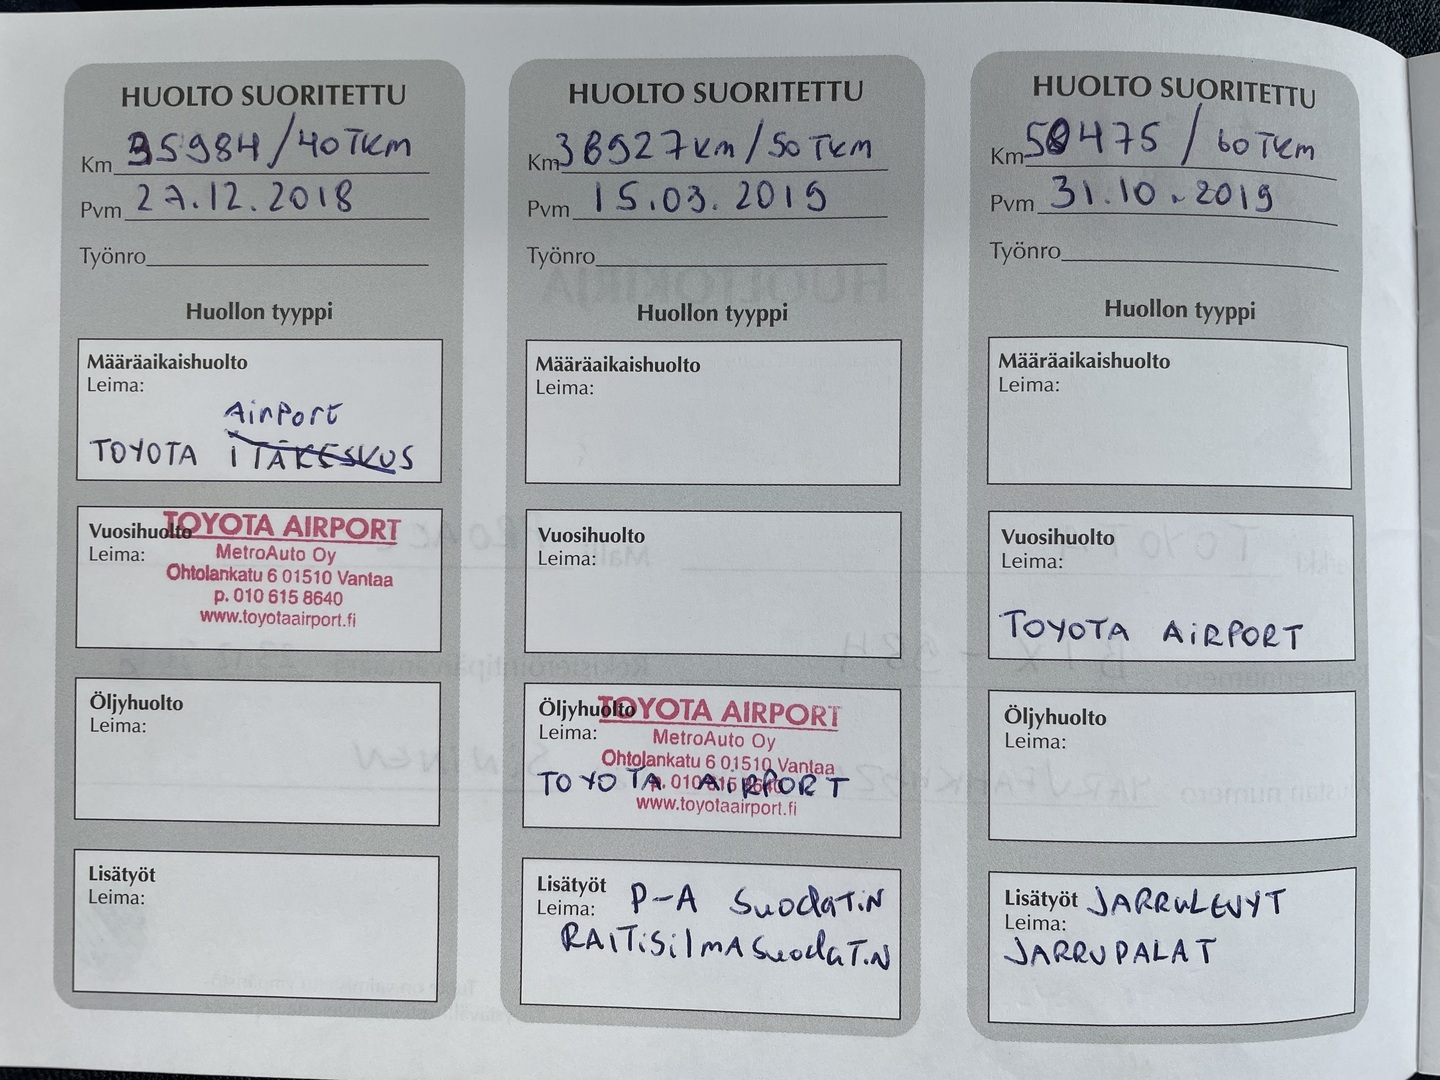 HUOLTO SUORITETTU
Km 35984/40TKm
Pvm 27.12.2018
Työnro
Huollon tyyppi
Määräaikaishuolto
Leima:
AirPort
TOYOTA ITÄKESKUS
Vuosihuolto
Leima:
TOYOTA AIRPORT
MetroAuto Oy
Ohtolankatu 6 01510 Vantaa
p. 010 615 8640
www.toyotaairport.fi
Öljyhuolto
Leima:
Lisätyöt
Leima:
HUOLTO SUORITETTU
Km 38927km/50TKm
Pvm 15.03.2019
Työnro
Huollon tyyppi
Määräaikaishuolto
Leima:
Vuosihuolto
Leima:
Öljyhuolto
Leima:
TOYOTA AIRPORT
MetroAuto Oy
Ohtolankatu 6 01510 Vantaa
p. 010 615 8640
www.toyotaairport.fi
TOYOTA AiRPORT
Lisätyöt P-A SuodaTiN
Leima:
RAITiSilmASuodaTiN
HUOLTO SUORITETTU
Km 50475/60TKm
Pvm 31.10.2019
Työnro
Huollon tyyppi
Määräaikaishuolto
Leima:
Vuosihuolto
Leima:
TOYOTA AiRPORT
Öljyhuolto
Leima:
Lisätyöt JARRuLEVYT
Leima:
JARRUPALAT